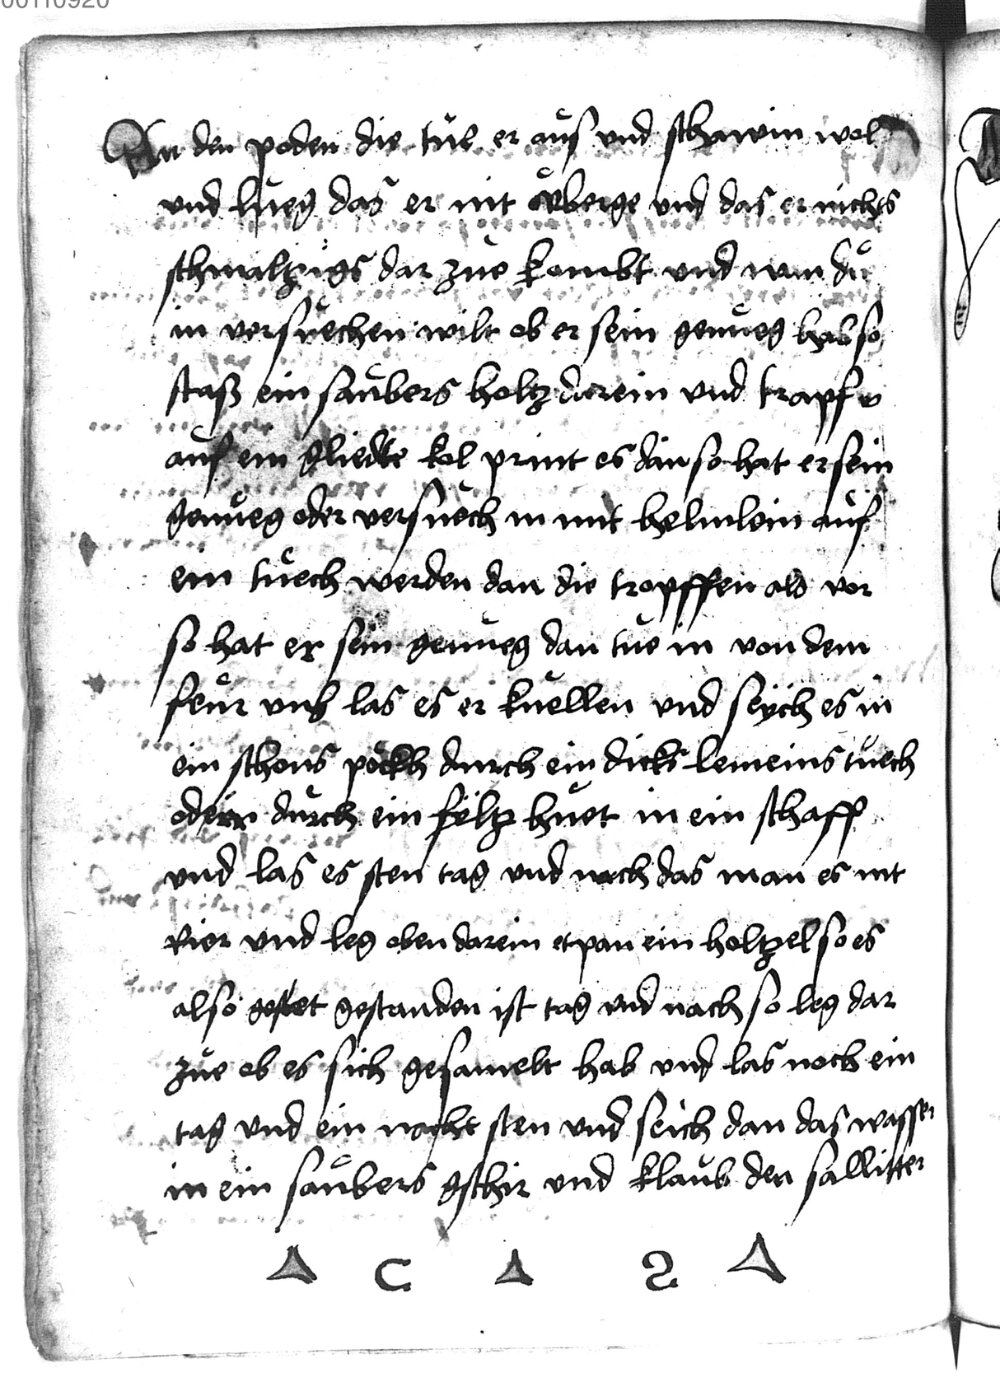 00110920
An den poden die tüe er auß und schawin wol
und lueg das er nit vberge und das er nichts
schmaltzigs dar zue kombt und wan du
in versuechen wilt ob er sein genueg hab so
stoß ein saubers holtz darein und tropf
auf ein gliedte kol print es dan so hat er sein
genueg oder versuech in mit helmlein auf
ein tuech werden dan die tropffen als vor
so hat er sein genueg dan tue in von dem
feur und las es er kuellen und seych es in
ein schons pöckh durch ein dicks leineins tuech
oder durch ein filtz huet in ein schaff
und las es sten tag und nach das man es nit
rier und leg oben darein etpan ein holtzel so es
also gestanden ist tag und nach so leg dar
zue ob es sich gesamelt hab und las noch ein
tag und ein nacht sten und seich dan das wasser
in ein saubers gschir und klaub den sallitter
C 2